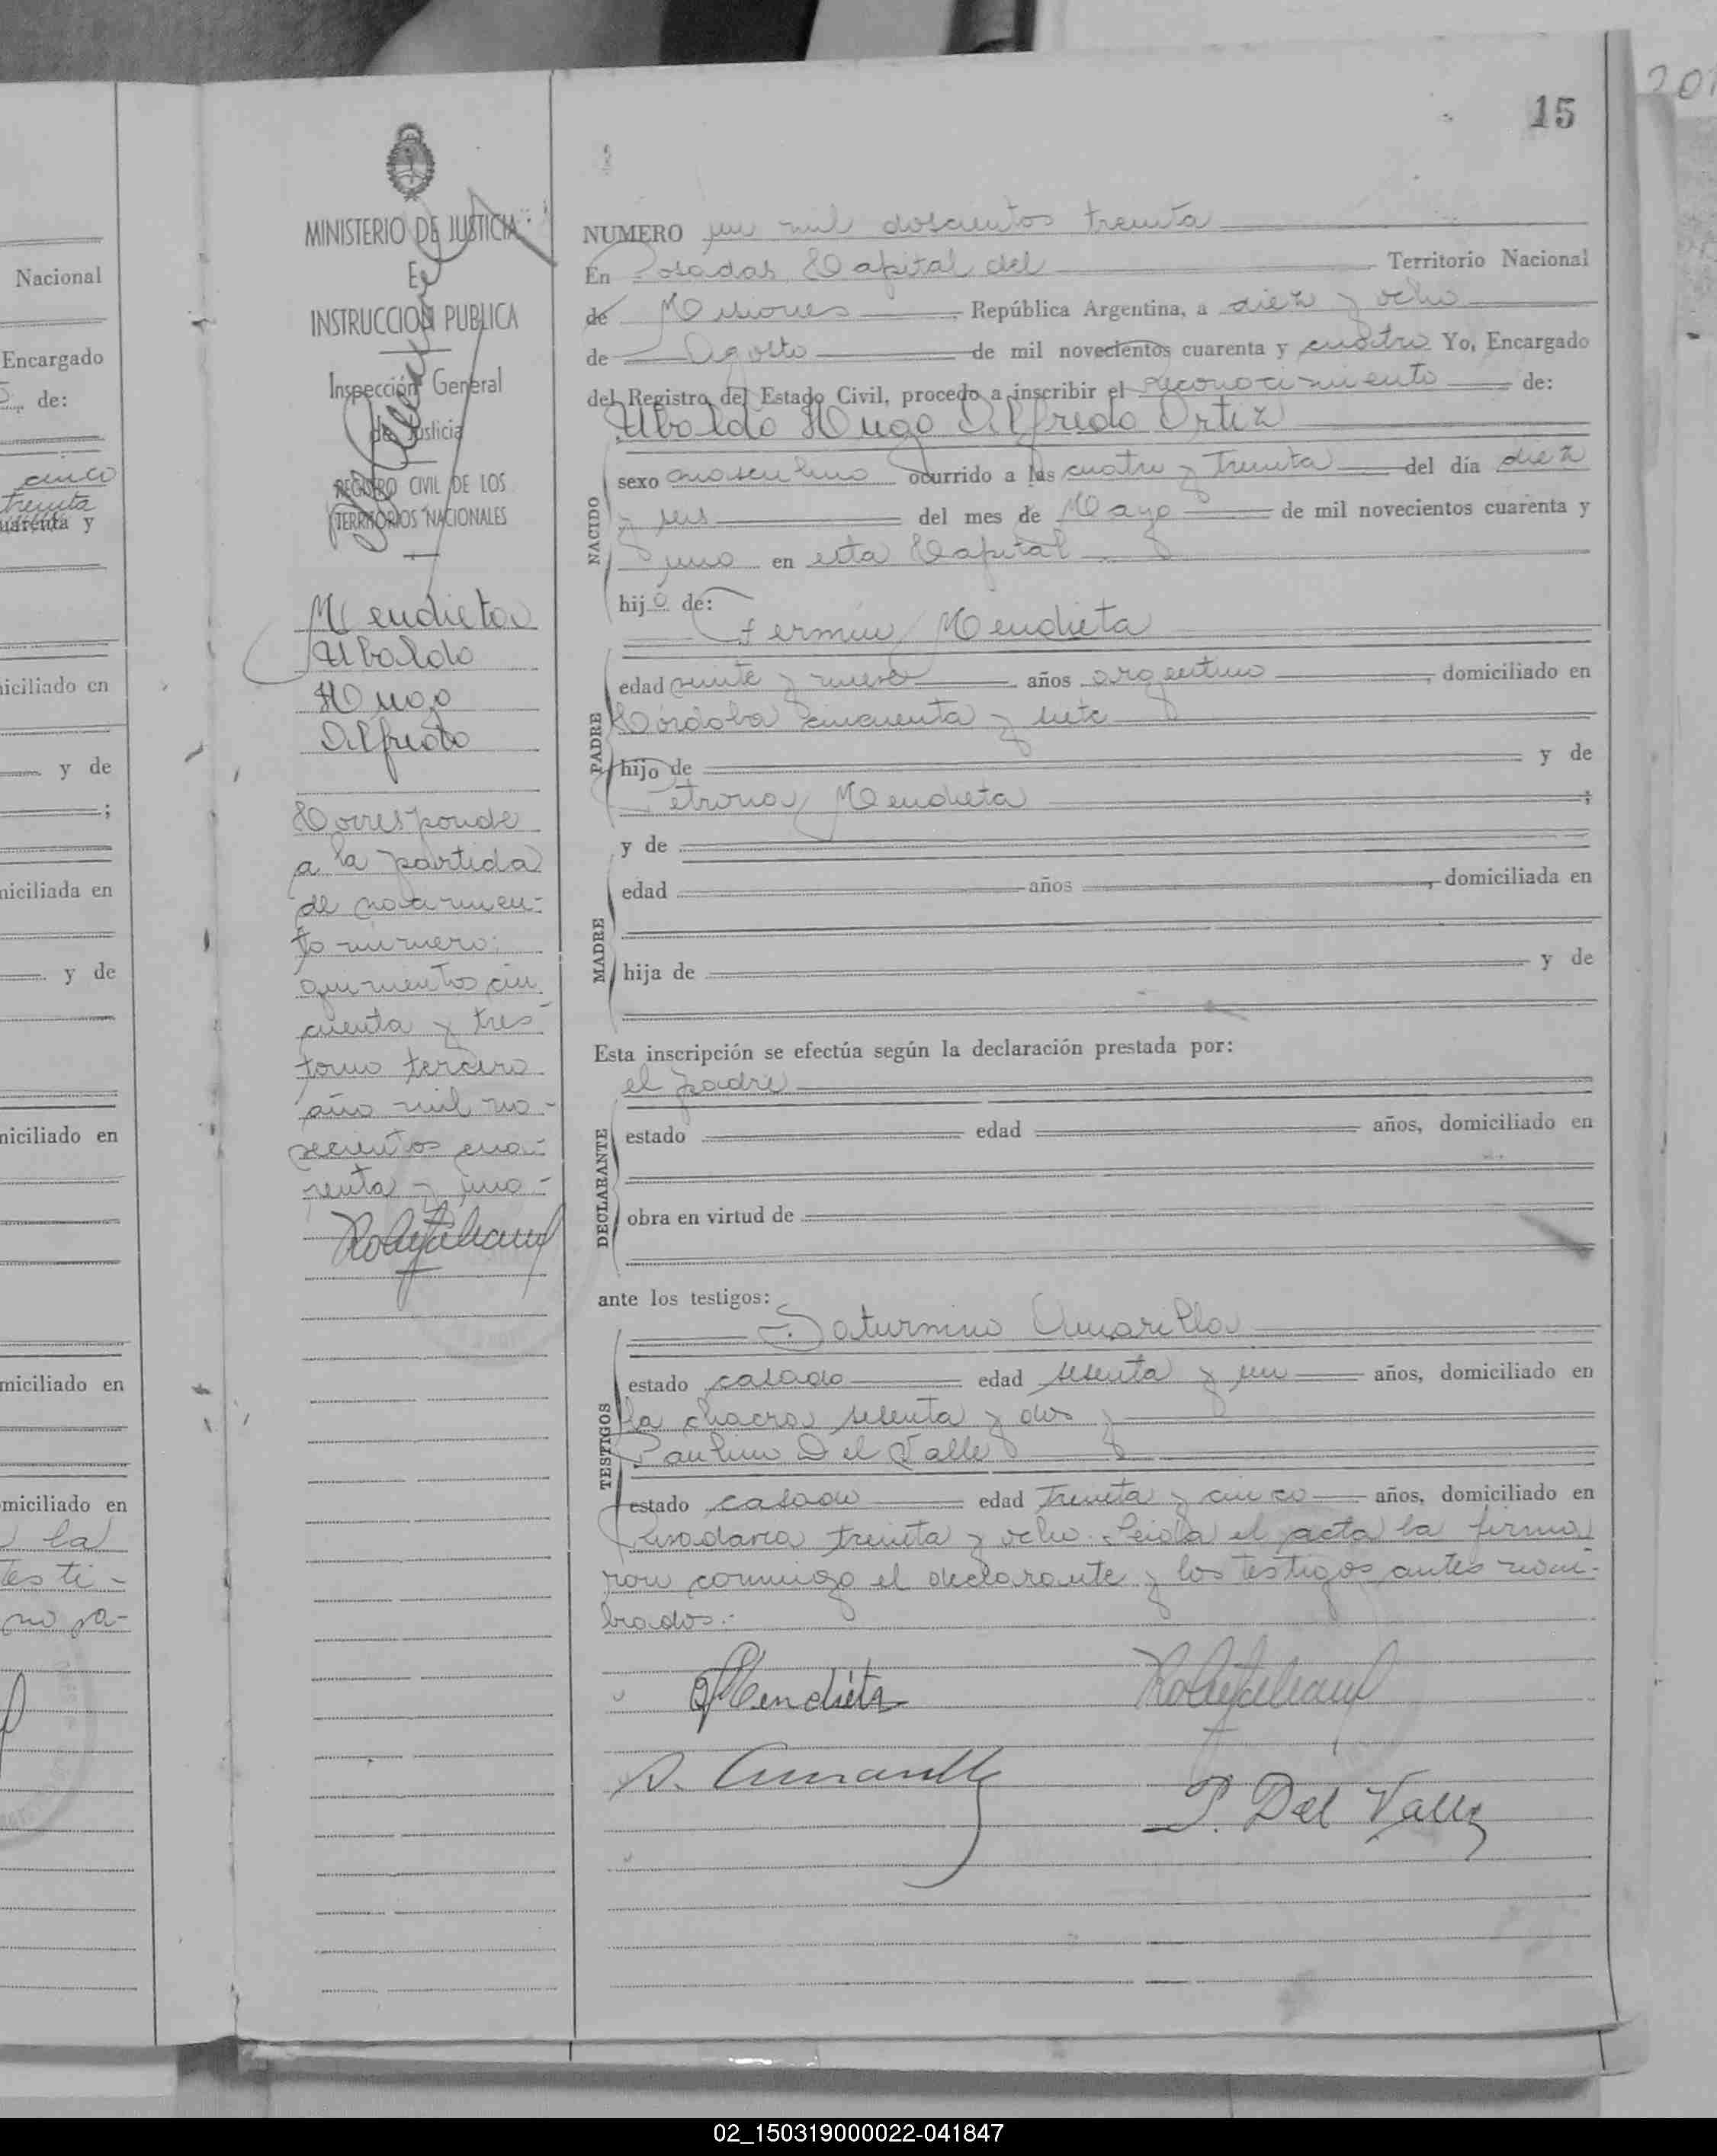 201
15
MINISTERIO DE JUSTICIA
E
INSTRUCCION PUBLICA
Inspección General
de Justicia
REGISTRO CIVIL DE LOS
TERRITORIOS NACIONALES
Mendieta
Ubaldo
Hugo
Alfredo
Corresponde
a la partida
de nacimien-
to número:
quinientos cin
cuenta y tres
tomo tercero
año mil no-
vecientos cua-
renta y uno-
NUMERO un mil doscientos treinta
En Posadas, Capital del Territorio Nacional
de Misiones República Argentina, a diez y ocho
de Agosto de mil novecientos cuarenta y cuatro Yo, Encargado
del Registro del Estado Civil, procedo a inscribir el reconocimiento de:
Ubaldo Hugo Alfredo Ortiz
NACIDO
sexo masculino ocurrido a las cuatro y treinta del día diez
y seis del mes de Mayo de mil novecientos cuarenta y
uno en esta Capital
hijo de:
Fermin Mendieta
PADRE
edad veinte y nueve años argentino, domiciliado en
Córdoba cincuenta y siete
hijo de y de
Petrona Mendieta ;
y de
MADRE
edad años , domiciliada en
hija de y de
Esta inscripción se efectúa según la declaración prestada por:
el padre
DECLARANTE
estado edad años, domiciliado en
obra en virtud de
ante los testigos:
Saturnino Amarilla
TESTIGOS
estado casado edad sesenta y un años, domiciliado en
la chacra sesenta y dos y
Paulino Del Valle
estado casado edad treinta y cinco años, domiciliado en
Rivadavia treinta y ocho. Leida el acta la firma
ron conmigo el declarante y los testigos antes nom-
brados.-
Mendieta
S. Amarilla
P. Del Valle
Nacional
Encargado
de:
cinco
treinta
cuarenta y
domiciliado en
y de
;
domiciliada en
y de
domiciliado en
domiciliado en
domiciliado en
la
testi-
no sa-
02_150319000022-041847